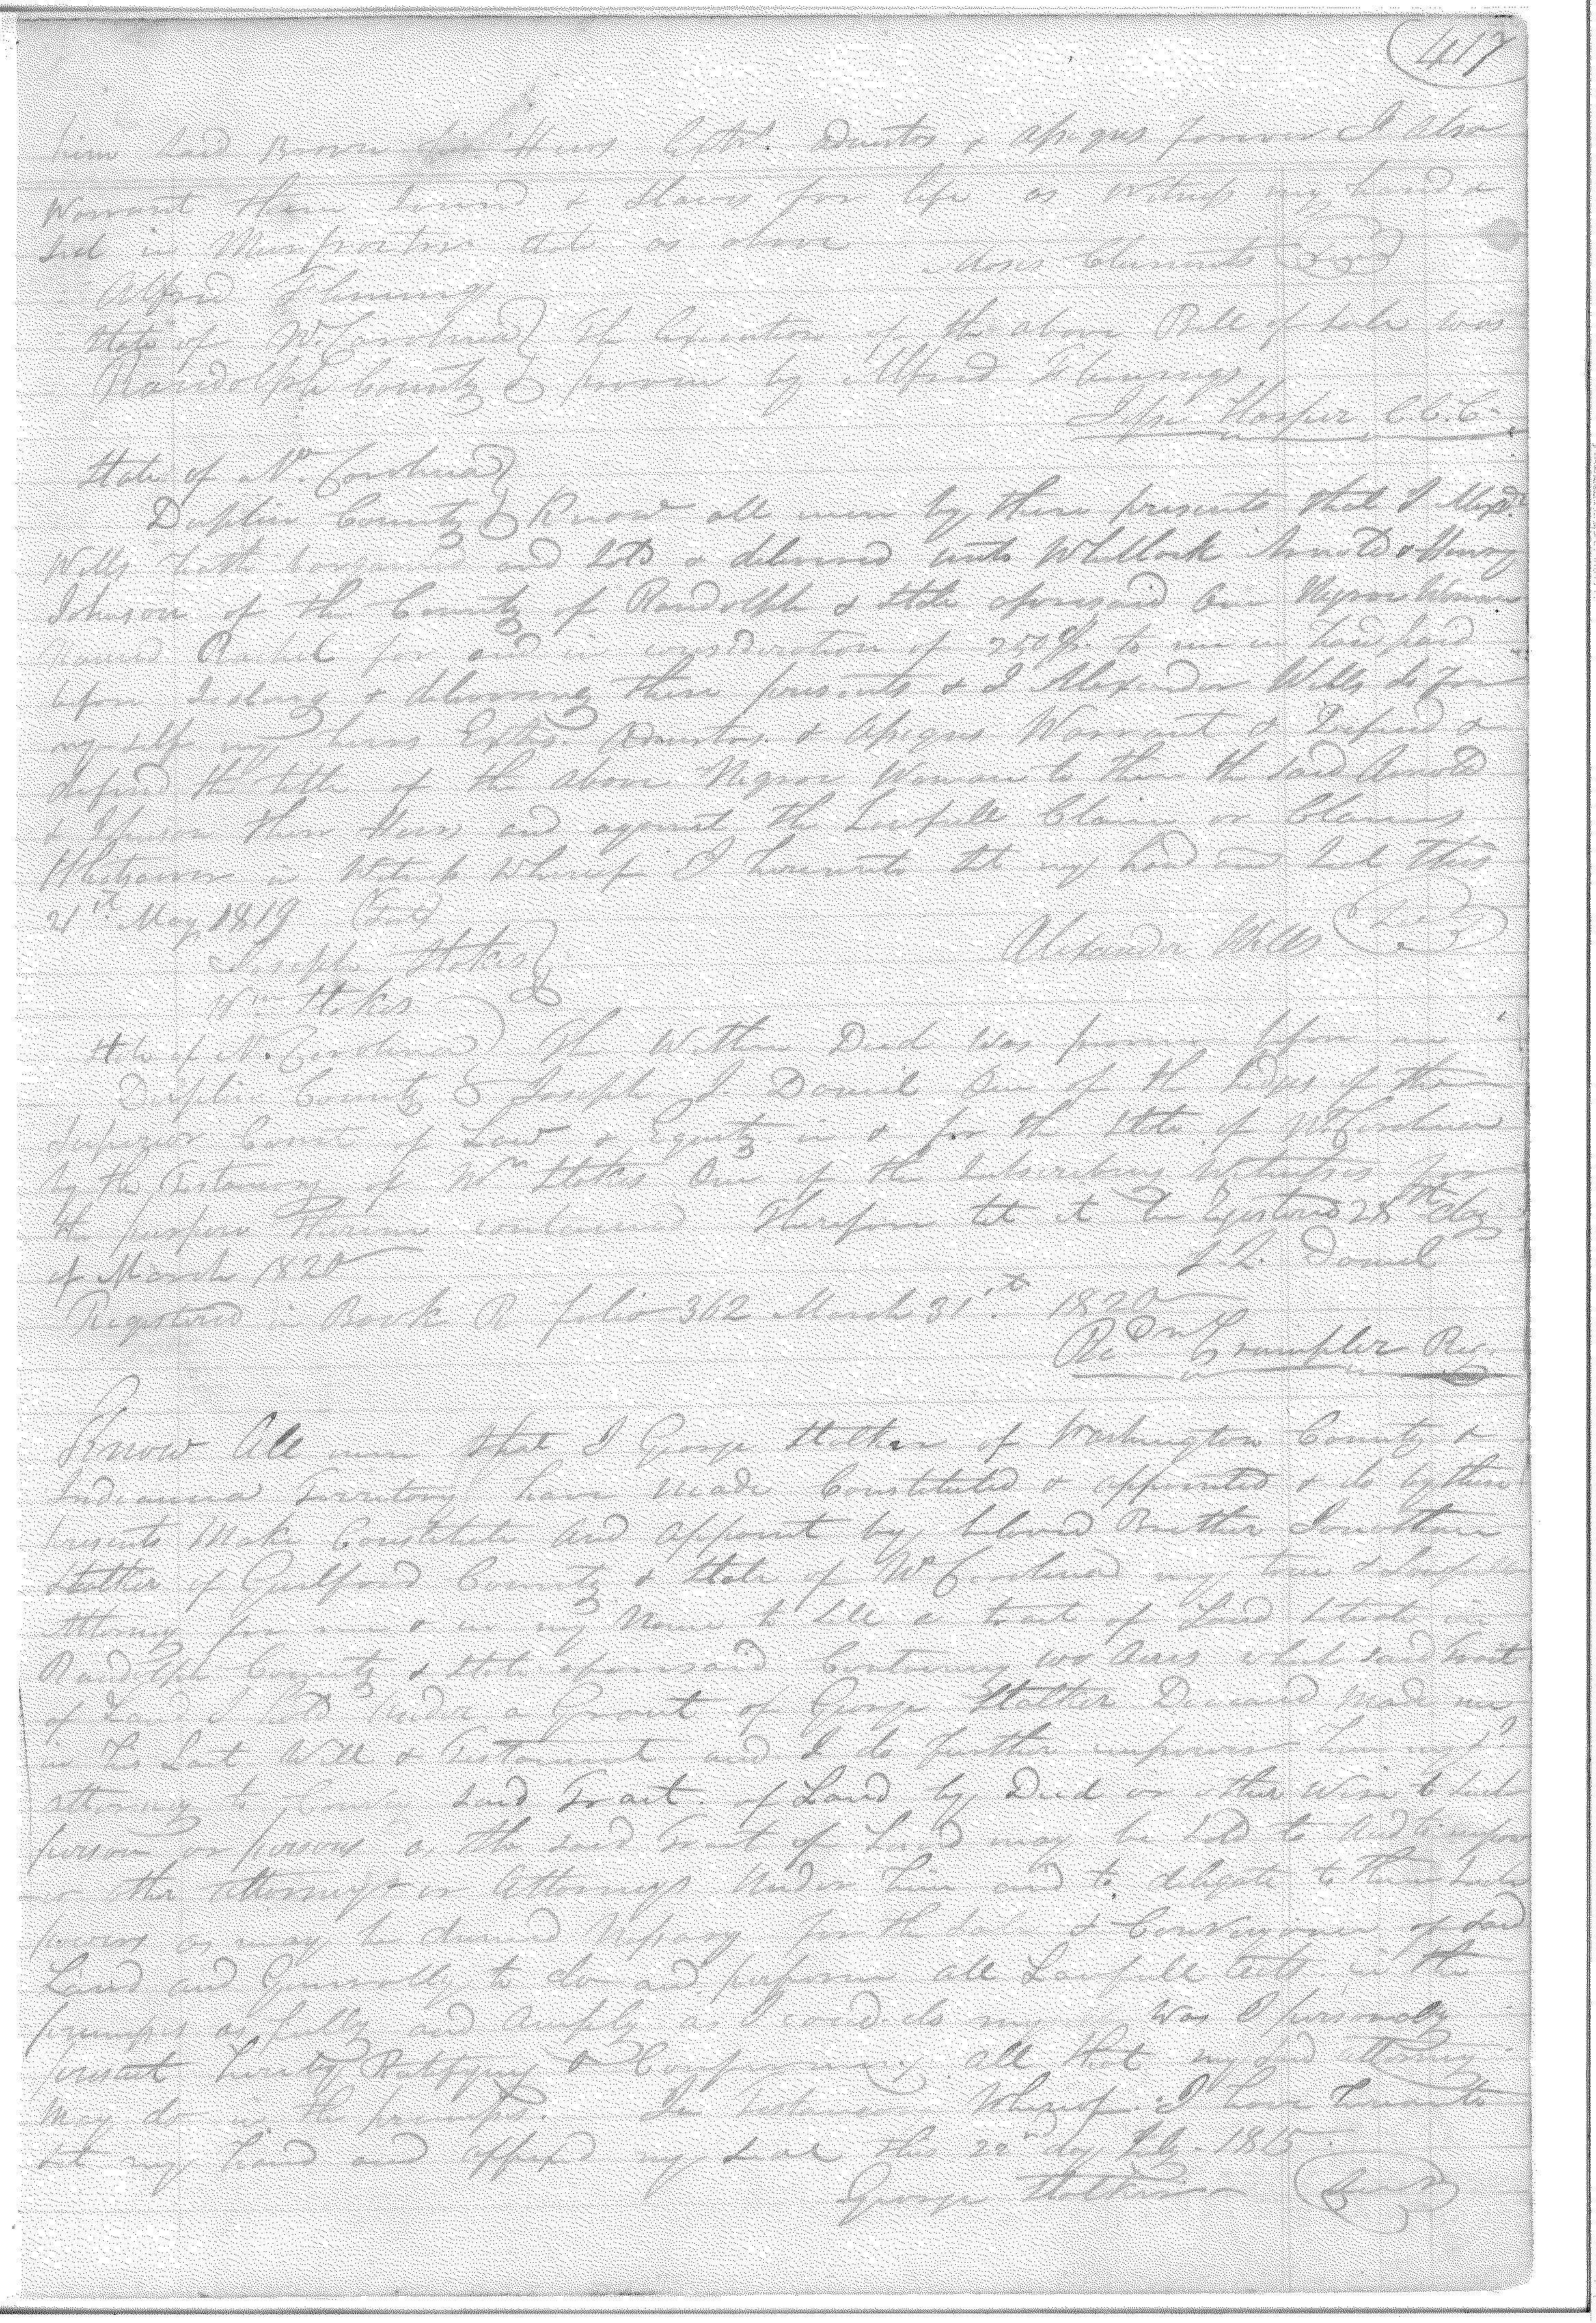 417
him said Brown his Heirs Extrs. Admtrs & Assigns forever I Also
Warrant them Sound & Slaves for life as Witness my hand &
Seal in Murfreetsm date as above
Moses Clements Seal
Alfred Flemming
State of No. Carolina The Execution of the above Bill of Sale was
Randolph County proven by Alfred Flemmings
Jesse Harper C.C.C.
State of No. Carolina
Duplin County Know all men by these presents that I Alexdr
Wells hath bargained and Sold & delivered unto Whitlock Arnold & Henry
Johnson of the County of Randolph & State aforesaid One Negroe Woman
Named Rachel for and in consideration of 250 $ to me in hand paid
before Sealing & delivering these presents & I Alexander Wells do for
my self my heirs Extrs. Admtrs. & Assigns Warrant & Defend &
defend the title of the above Negroe Woman to them the said Arnold
& Johnson their Heirs and against the Lawfull Claim or Claims
Whatsoever in Witness Whereof I hereunto Set my hand and Seal this
21st May 1819 (Test)
Alexander Wells Seal
Joseph Stokes
Wm Stokes
State of No. Carolina The Within Deed was proven before me
Duplin County Joseph J. Daniel One of the Judges of the
Superior Court of Law & Equity in & for the State of No Carolina
by the Testamony of Wm Stokes One of the Subscribing Witnesses for
the purpose therein contained Therefore let it be Registered 28th day
of March 1820
J. J. Daniel
Registered in Book R folio 362 March 31st 1820
Crumpler Reg.
Know All men that I George Stalker of Washington County &
Indianna Territory have made Constituted & appointed & do by these
presents Make Constitute and appoint by beloved Brother Jonathan
Stalker of Guilford County & State of No Carolina my true & Lawfull
Attorney for me & in my Name to Sell a tract of Land Situate in
Randolph County & State aforesaid Containing 100 Acres which said tract
of Land I hold Under a Grant of George Stalker Deceased Made me
in his Last Will & Testament and I do further impower him my sd
attorney to Convey said Tract of Land by Deed or other Wise to such
person or persons as the said Tract of Land may be Sold to And to impower
or other Attorney or Attorneys Under him and to deligate to them Such
powers as may be deemed Nessary for the Sale & Conveyance of said
Land and Generally to do and perform all Lawfull acts in the
premises as fully and Amply as I could do my Was I personally
present hereby Ratifying & Confirming all that my said attorney
May do in the premises. In Testimony Whereof I have hereunto
set my hand and affixed my Seal this 20nd day Feb. 1815
George Stalker Seal